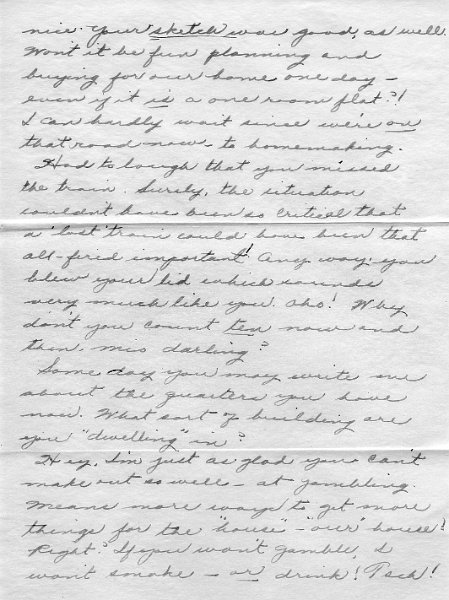 nice. Your sketch was good, as well.
Won't it be fun planning and
buying for our home one day -
even if it is a one room flat?!
I can hardly wait since we're on
that road now - to homemaking.
Had to laugh that you missed
the train. Surely, the situation
couldn't have been so critical that
a 'lost' train could have been that
all-fired important! Any way, you
blew your lid which sounds
very much like you. Oho! Why
don't you count ten now and
then, mio darling?
Some day you may write me
about the quarters you have
now. What sort of building are
you "dwelling" in?
Hey, I'm just as glad you can't
make out so well - at gambling.
Means more ways to get more
things for the "house" - "our" house!
Right? If you won't gamble, I
won't smoke - or drink! Tsch!